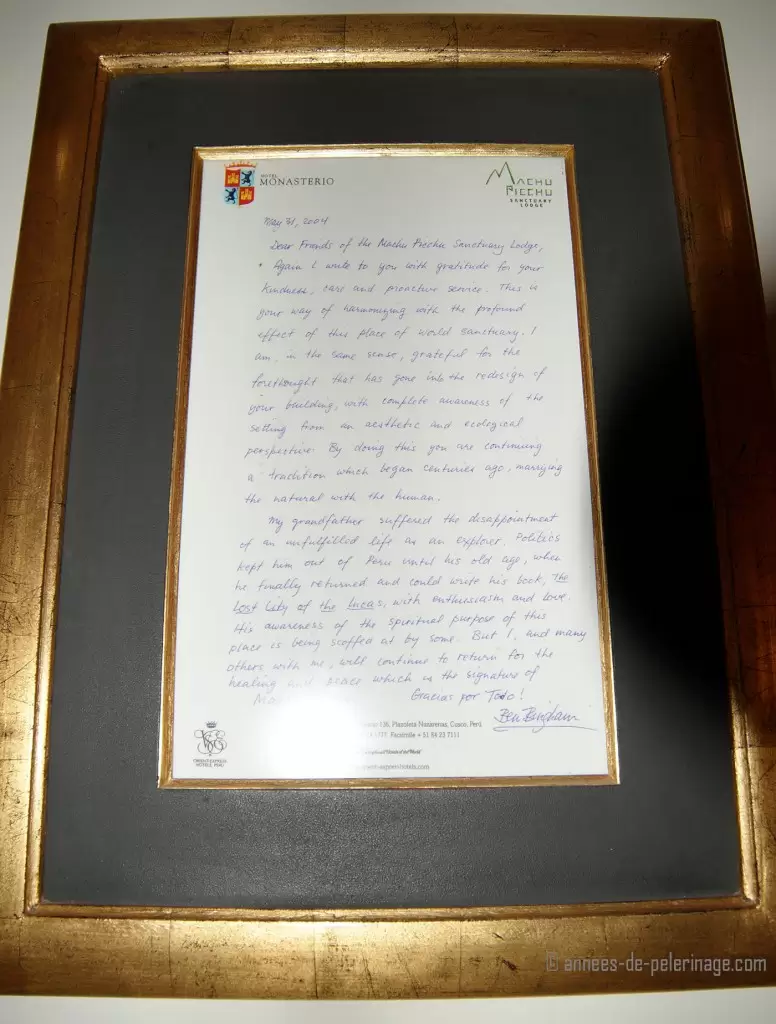 HOTEL
MONASTERIO
MACHU
PICCHU
SANCTUARY
LODGE
May 31, 2004
Dear Friends of the Machu Picchu Sanctuary Lodge,
Again I write to you with gratitude for your
kindness, care and proactive service. This is
your way of harmonizing with the profound
effect of this place of world sanctuary. I
am, in the same sense, grateful for the
forethought that has gone into the redesign of
your building, with complete awareness of the
setting from an aesthetic and ecological
perspective. By doing this you are continuing
a tradition which began centuries ago, marrying
the natural with the human.
My grandfather suffered the disappointment
of an unfulfilled life as an explorer. Politics
kept him out of Peru until his old age, when
he finally returned and could write his book, The
Lost City of the Incas, with enthusiasm and love.
His awareness of the spiritual purpose of this
place is being scoffed at by some. But I, and many
others with me, will continue to return for the
healing and peace which is the signature of
Gracias por Todo!
Ben Bingham
136, Plazoleta Nazarenas, Cusco, Perú
1777, Facsimile + 51 84 23 7111
ORIENT-EXPRESS
HOTELS, PERU
orient-express-hotels.com
© annees-de-pelerinage.com